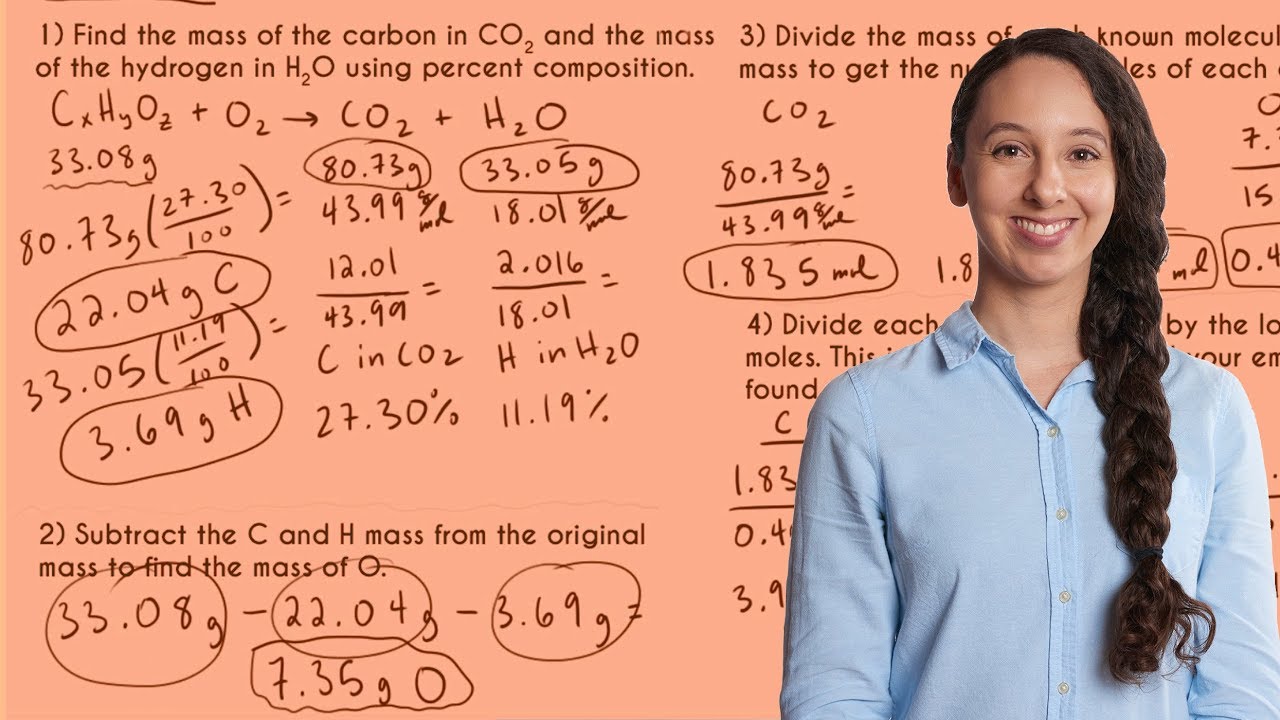 1) Find the mass of the carbon in CO₂ and the mass
of the hydrogen in H₂O using percent composition.
CxHyOz + O₂ → CO₂ + H₂O
33.08g
80.73g
33.05g
43.99 g/mol
18.01 g/mol
80.73g(27.30/100)=
22.04g C
12.01/43.99 =
2.016/18.01 =
33.05(11.19/100)=
C in CO₂
H in H₂O
3.69g H
27.30%
11.19%
2) Subtract the C and H mass from the original
mass to find the mass of O.
33.08g – 22.04g – 3.69g =
7.35g O
3) Divide the mass of known
mass to get the of each
CO₂
80.73g/43.99 g/mol =
1.835 mol
mol
4) Divide each by the
moles. your
found
C